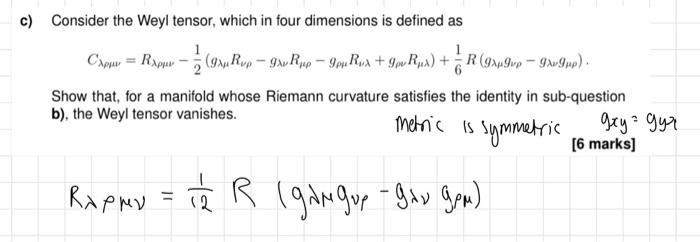 c) Consider the Weyl tensor, which in four dimensions is defined as
C_{λρμν} = R_{λρμν} − \frac{1}{2}(g_{λμ}R_{νρ} − g_{λν}R_{μρ} − g_{ρμ}R_{νλ} + g_{ρν}R_{μλ}) + \frac{1}{6} R (g_{λμ}g_{νρ} − g_{λν}g_{μρ}) .
Show that, for a manifold whose Riemann curvature satisfies the identity in sub-question
b), the Weyl tensor vanishes.
metric is symmetric g_{xy} = g_{yx}
[6 marks]
R_{λρμν} = \frac{1}{12} R (g_{λμ}g_{νρ} − g_{λν} g_{ρμ})